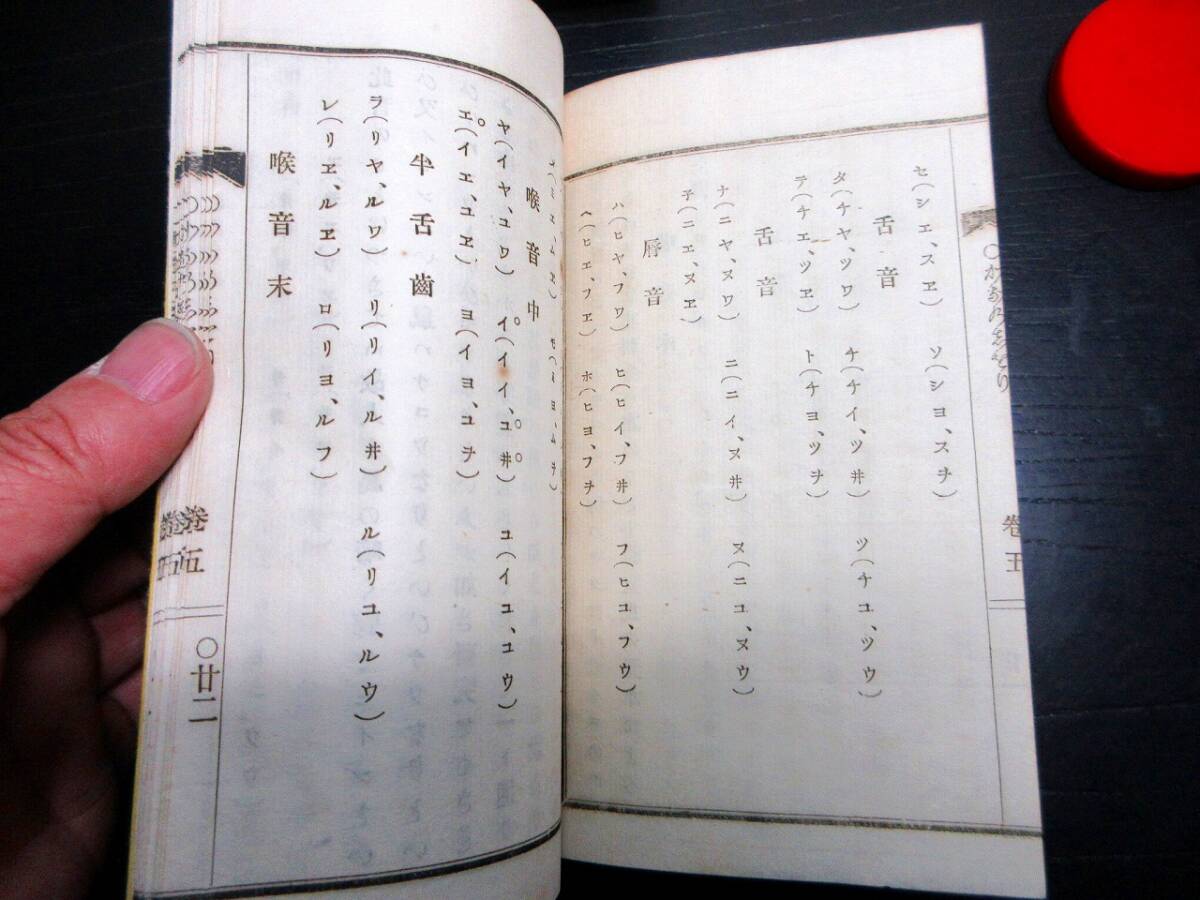 セ(シエ、スヱ) ソ(シヨ、スヲ)
舌音
タ(チヤ、ツワ) チ(チイ、ツ井) ツ(チユ、ツウ)
テ(チエ、ツヱ) ト(チヨ、ツヲ)
舌音
ナ(ニヤ、ヌワ) ニ(ニイ、ヌ井) ヌ(ニユ、ヌウ)
子(ニエ、ヌヱ)
唇音
ハ(ヒヤ、フワ) ヒ(ヒイ、フ井) フ(ヒユ、フウ)
ヘ(ヒエ、フヱ) ホ(ヒヨ、フヲ)
卷五
喉音中
ヤ(イヤ、ユワ) イ(イイ、ユ井) ユ(イユ、ユウ)
エ(イエ、ユヱ) ヨ(イヨ、ユヲ)
半舌齒
ラ(リヤ、ルワ) リ(リイ、ル井) ル(リユ、ルウ)
レ(リヱ、ルヱ) ロ(リヨ、ルフ)
喉音末
卷五
〇廿二